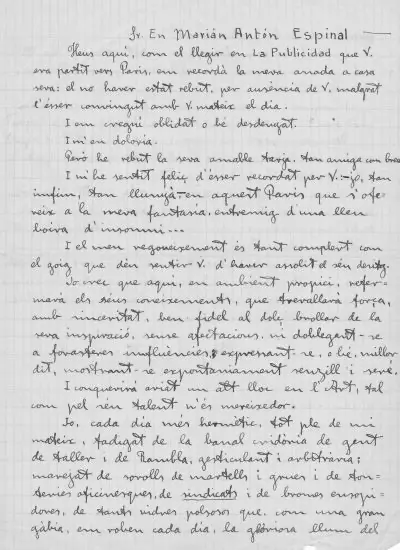 Sr. En Marián Antón Espinal
Heus aquí, com el llegir en La Publicidad que V.
era partit vers París, em recordà la meva anada a casa
seva: el no haver estat rebut, per ausència de V. malgrat
l'ésser convingut amb V. mateix el dia.
I em cregui oblidat o bé desdenyat.
I m'en doloria.
Però he rebut la seva amable tarja, tan amiga con breu
I m'he sentit feliç d'ésser recordat per V.-jo, tan
ínfim, tan llunyà-en aquest París que s'ofe-
reix a la meva fantasia, entremig d'una lleu
boira d'insomni...
I el meu regoneixement és tant complert com
el goig que deu sentir V. d'haver assolit el seu desitg.
Jo crec que aquí, en ambient propici, refer-
marà els séus coneixements, que trevallarà força,
amb sinceritat, ben fidel al dolç brollar de la
seva inspiració, sense afectacions, ni doblegant-se
a forasteres influències, expressant-se, o bé, millor
dit, mostrant-se espontaniament senzill i seré.
I conquerirà aviat un alt lloc en l'Art, tal
com pel séu talent n'és mereixedor.
Jo, cada dia més hermètic, tót ple de mi
mateix, fadigat de la banal cridòria de gent
de taller i de Rambla, gesticulant i arbitrària;
marejat de sorolls de martells i grues i de ton-
teries oficinesques, de sindicats i de bromes ensopi-
dores, de tants vidres polsosos que, com una gran
gàbia, em roben cada dia, la gloriosa llum del